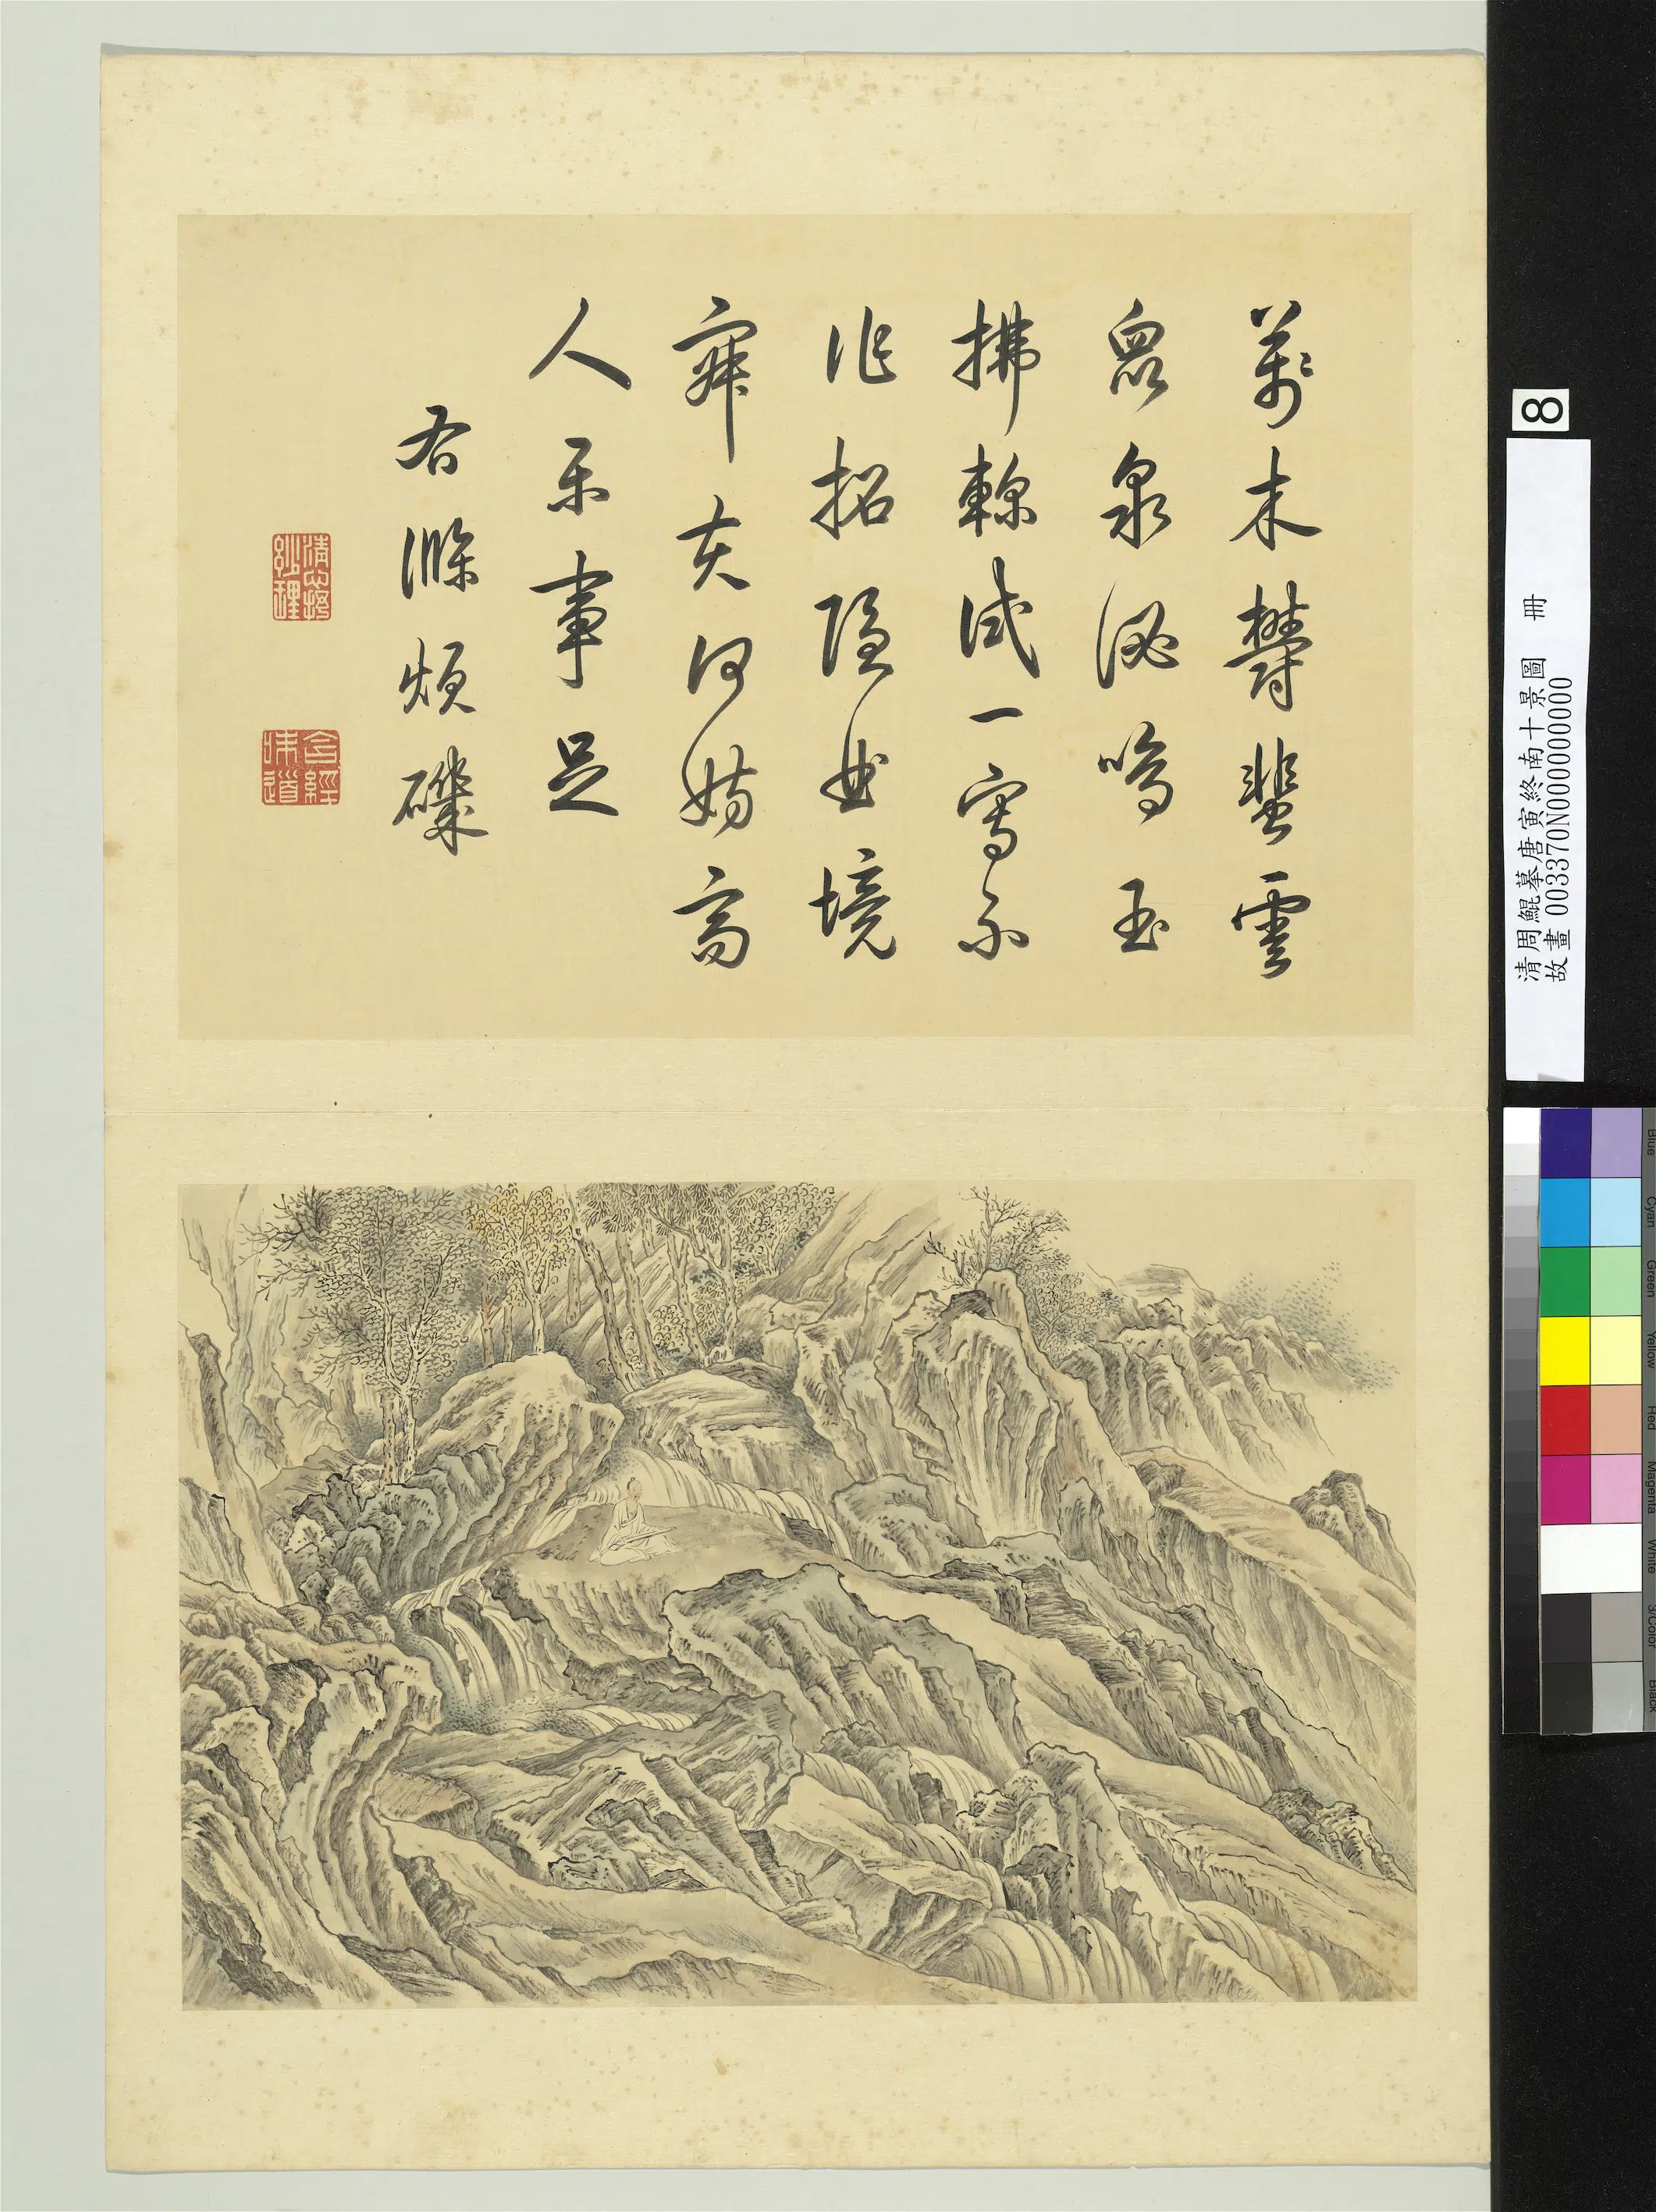 萬木鬱蜚雲
眾泉泌鳴玉
拂軫試一寫不
作招隱曲境
寂夫何妨高
人樂事足
右滌煩磯
清心抒妙理
含經味道
8
清周鯤摹唐寅終南十景圖 冊
故畫 003370N000000000
Blue
Cyan
Green
Yellow
Red
Magenta
White
3/Color
Black